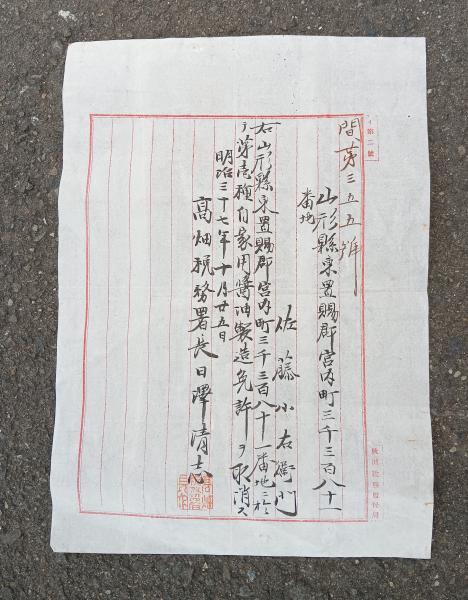 イ第二號
間第三五五號
山形縣東置賜郡宮内町三千三百八十一
番地
佐藤小右衛門
右山形縣東置賜郡宮内町三千三百八十一番地ニ於
テ第壱種自家用醤油製造免許ヲ取消ス
明治三十七年十月廿五日
高畑税務署長日澤清志